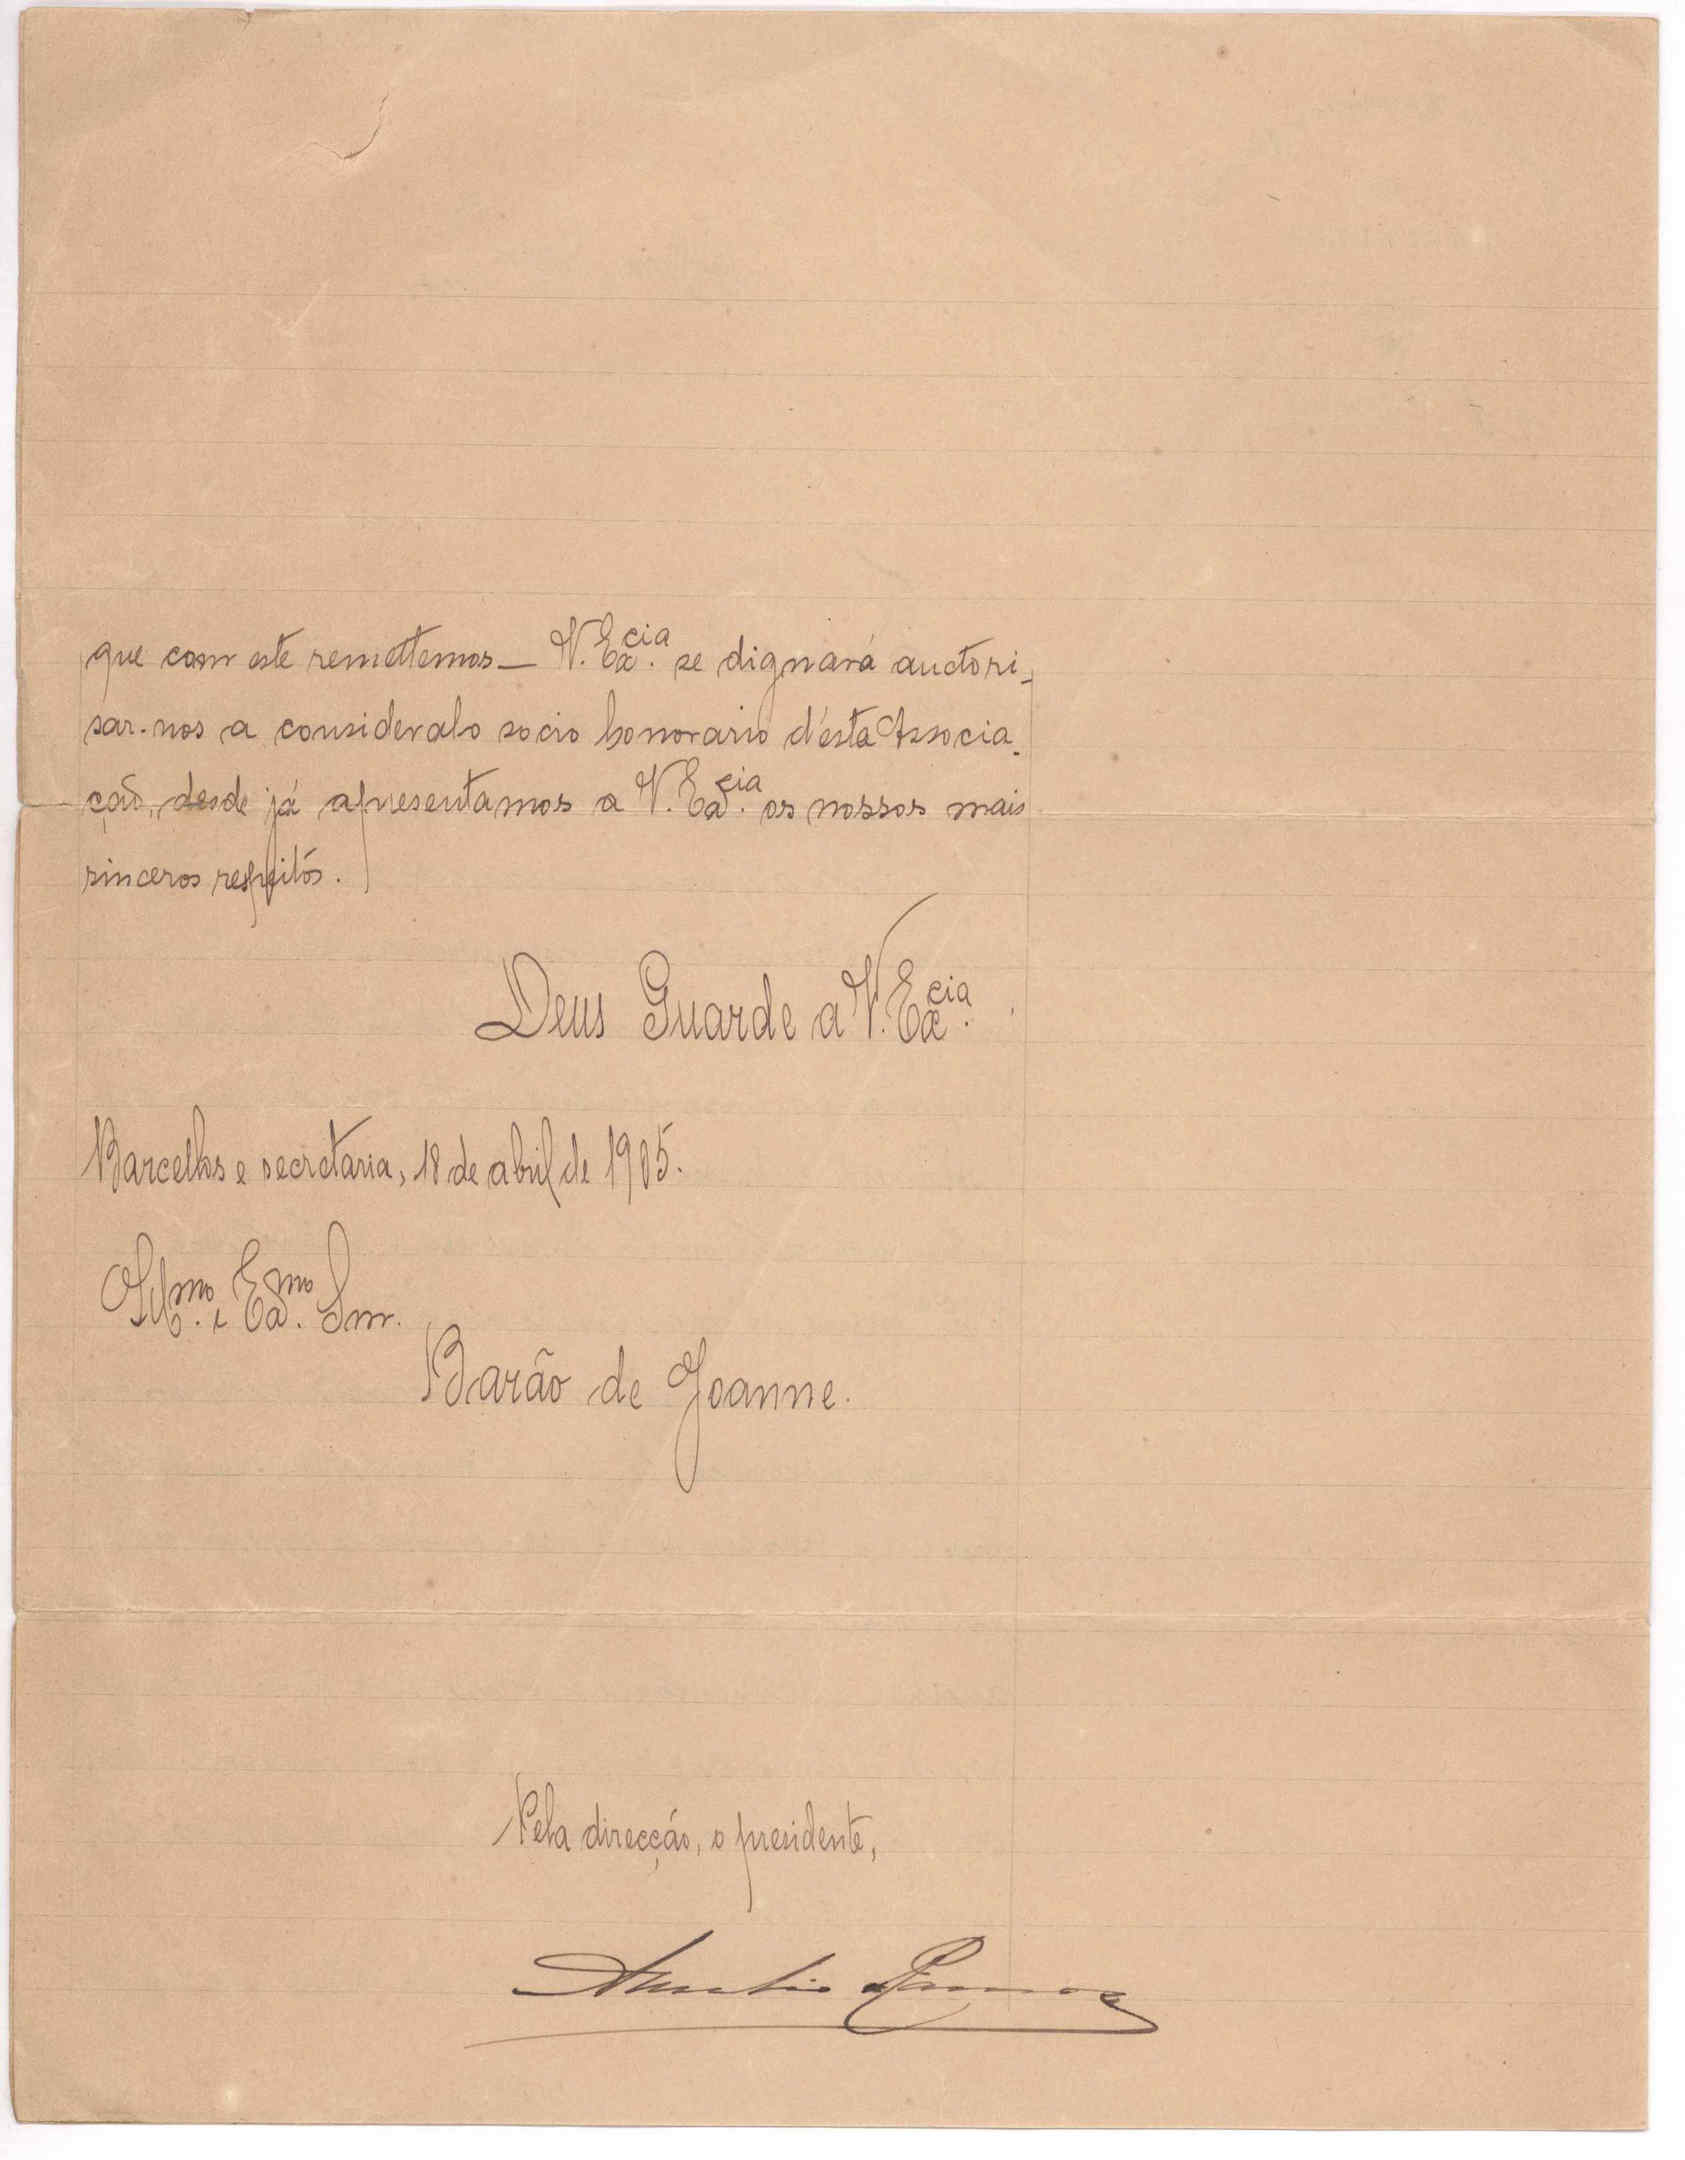 que com este remettemos — V. Ex.cia se dignará auctori-
sar-nos a consideralo socio honorario d'ésta Associa-
ção, desde já apresentamos a V. Ex.cia os nossos mais
sinceros respeitós.
Deus Guarde a V. Ex.cia
Barcellos e secretaria, 18 de abril de 1905.
Ill.mo e Ex.mo Snr.
Barão de Joanne.
Pela direcção, o presidente,
Ramos